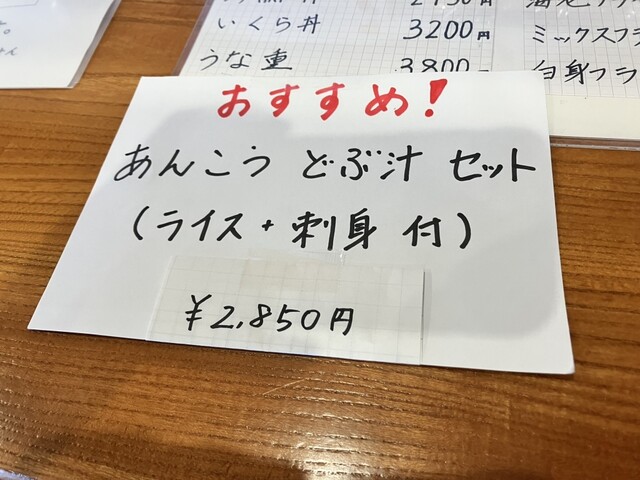 いくら丼 3200円
うな重 3800
ミックスフラ
白身フラ
おすすめ!
あんこう どぶ汁 セット
(ライス+刺身 付)
¥2,850円